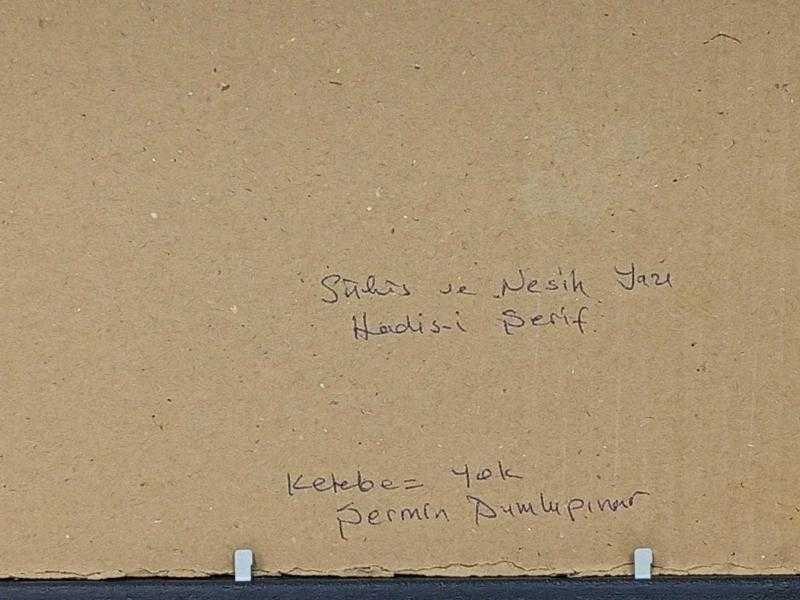 Sülüs ve Nesih Yazı
Hadis-i Şerif
Ketebe= Yok
Şermin Dumlupınar